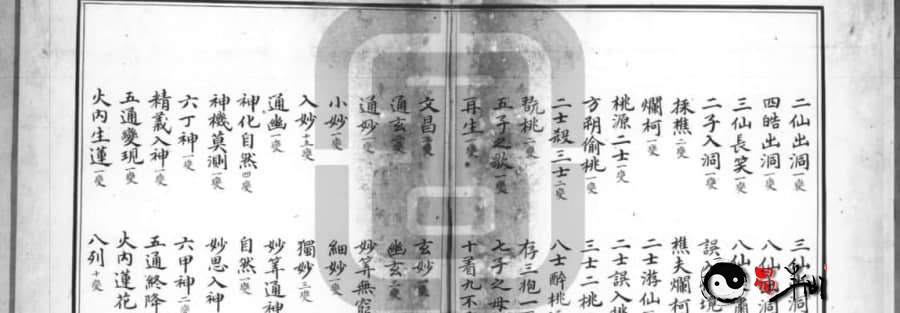 二仙出洞一變 三仙
四皓出洞一變 八仙出洞
三仙長笑一變 八仙
二子入洞一變 誤
採樵二變 樵夫爛柯
爛柯一變 二士游仙
桃源二士一變 二士誤入桃
方朔偷桃一變 三士二桃
二士殺三士二變 八士醉桃
翫桃一變 存三抱一
五子之歌一變 七子之母
再生 十着九不
文昌 玄妙
通玄 幽玄二變
通妙一變 妙筭無窮
小妙一變 細妙一變
入妙五變 獨妙三變
通幽一變 妙筭通神
神化自然四變 自然一變
神機莫測一變 妙思入神
六丁神一變 六甲神二變
精義入神一變 五通終降
五通變現一變 火內蓮花
火內生蓮一變 八列十變